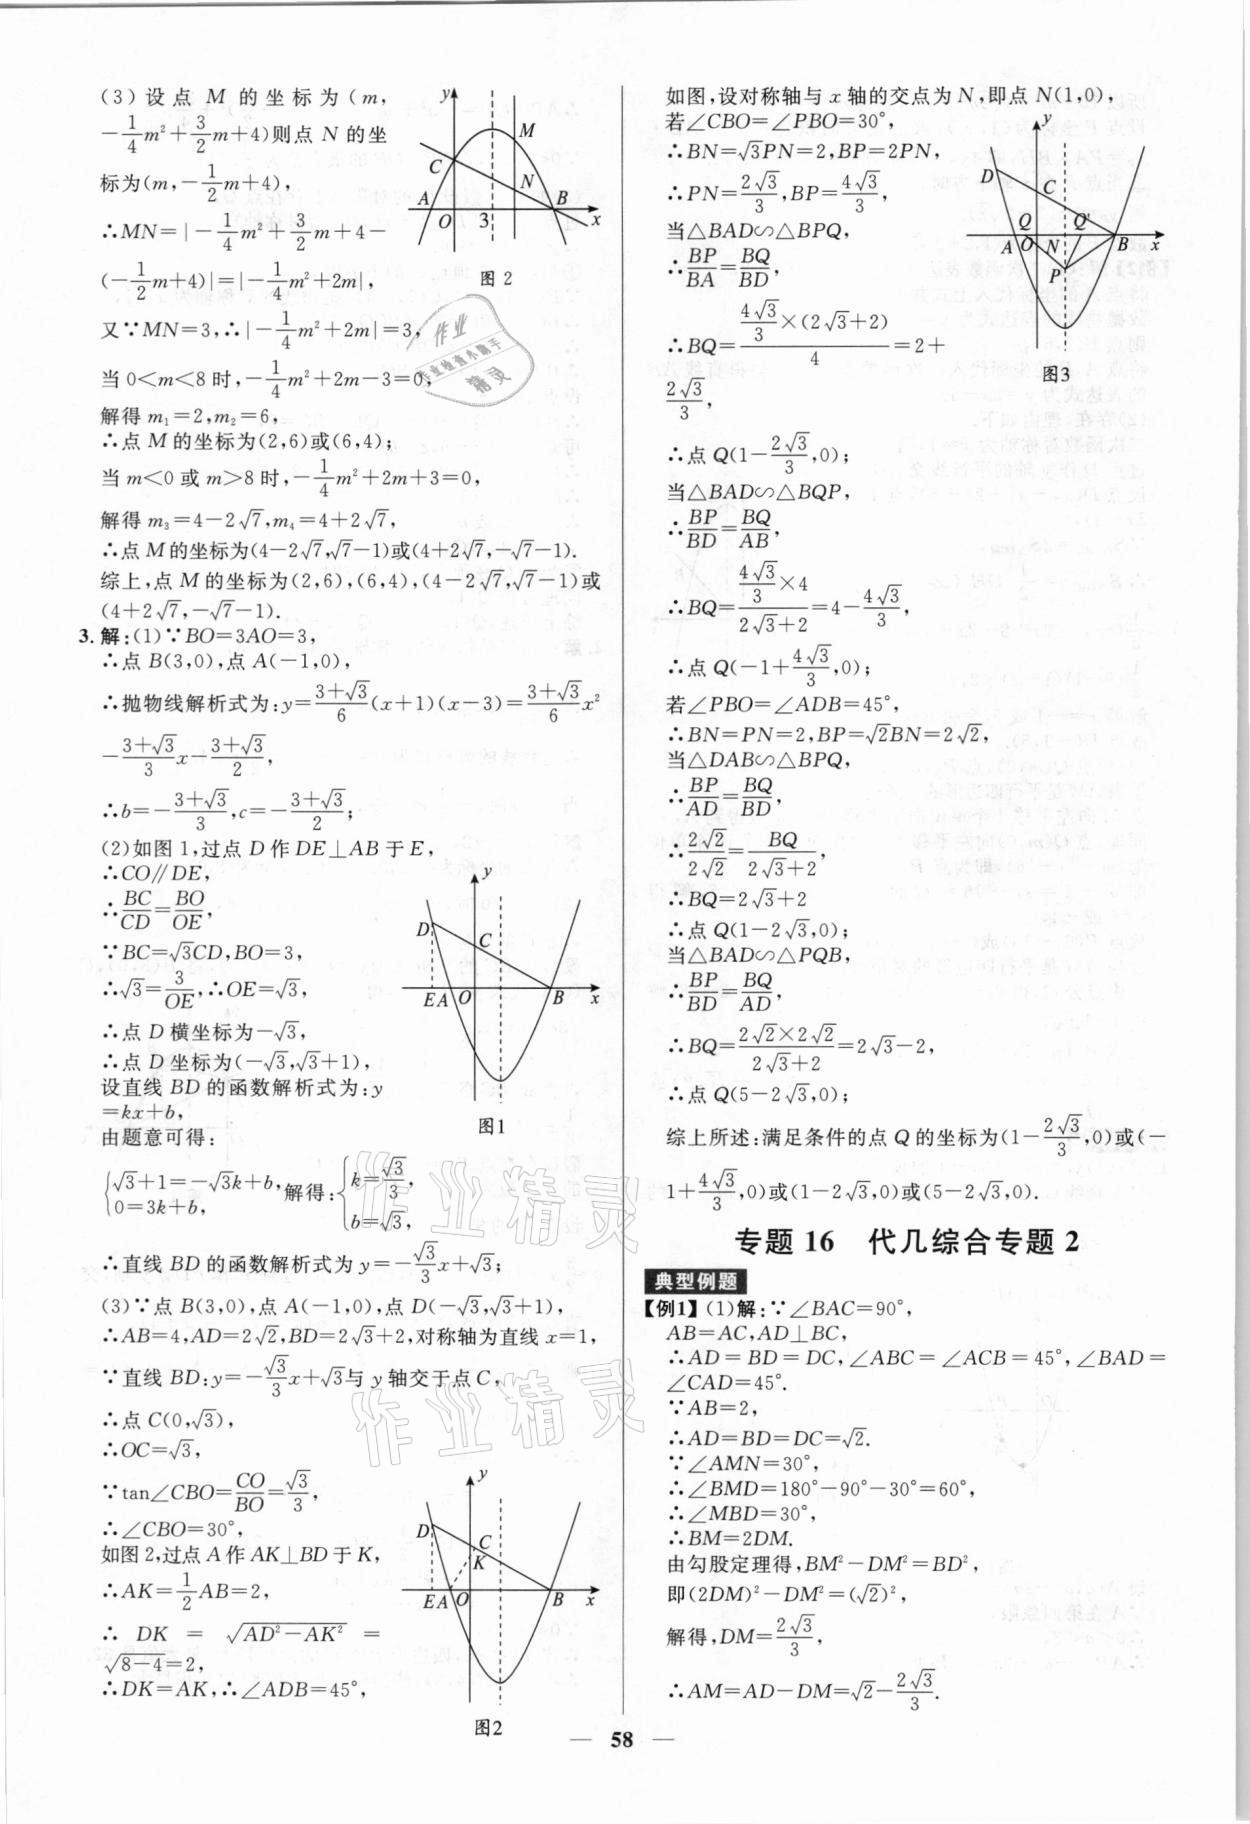 (3)设点 M 的坐标为(m,
-1/4m²+3/2m+4)则点 N 的坐
标为(m,-1/2m+4),
∴MN=|-1/4m²+3/2m+4-
(-1/2m+4)|=|-1/4m²+2m|,
又∵MN=3,∴|-1/4m²+2m|=3,
当 0<m<8 时,-1/4m²+2m-3=0,
解得 m₁=2,m₂=6,
∴点 M 的坐标为(2,6)或(6,4);
当 m<0 或 m>8 时,-1/4m²+2m+3=0,
解得 m₃=4-2√7,m₄=4+2√7,
∴点 M 的坐标为(4-2√7,√7-1)或(4+2√7,-√7-1).
综上,点 M 的坐标为(2,6),(6,4),(4-2√7,√7-1)或
(4+2√7,-√7-1).
y
C
M
N
A
O
3
B
x
图 2
3.解:(1)∵BO=3AO=3,
∴点 B(3,0),点 A(-1,0),
∴抛物线解析式为:y=(3+√3)/6(x+1)(x-3)=(3+√3)/6x²
-(3+√3)/3x-(3+√3)/2,
∴b=-(3+√3)/3,c=-(3+√3)/2;
(2)如图 1,过点 D 作 DE⊥AB 于 E,
∴CO∥DE,
∴BC/CD=BO/OE,
∵BC=√3CD,BO=3,
∴√3=3/OE,∴OE=√3,
∴点 D 横坐标为-√3,
∴点 D 坐标为(-√3,√3+1),
设直线 BD 的函数解析式为:y
=kx+b,
由题意可得:
{√3+1=-√3k+b, 0=3k+b, 解得:{k=-√3/3, b=√3,
∴直线 BD 的函数解析式为 y=-√3/3x+√3;
y
D
C
E A O
B
x
图1
(3)∵点 B(3,0),点 A(-1,0),点 D(-√3,√3+1),
∴AB=4,AD=2√2,BD=2√3+2,对称轴为直线 x=1,
∵直线 BD:y=-√3/3x+√3与 y 轴交于点 C,
∴点 C(0,√3),
∴OC=√3,
∵tan∠CBO=CO/BO=√3/3,
∴∠CBO=30°,
如图 2,过点 A 作 AK⊥BD 于 K,
∴AK=1/2AB=2,
∴ DK = √(AD²-AK²) =
√(8-4)=2,
∴DK=AK,∴∠ADB=45°,
y
D
C
K
E A O
B
x
图2
如图,设对称轴与 x 轴的交点为 N,即点 N(1,0),
若∠CBO=∠PBO=30°,
∴BN=√3PN=2,BP=2PN,
∴PN=2√3/3,BP=4√3/3,
当△BAD∽△BPQ,
∴BP/BA=BQ/BD,
∴BQ=(4√3/3×(2√3+2))/4=2+
2√3/3,
∴点 Q(1-2√3/3,0);
当△BAD∽△BQP,
∴BP/BD=BQ/AB,
∴BQ=(4√3/3×4)/(2√3+2)=4-4√3/3,
∴点 Q(-1+4√3/3,0);
若∠PBO=∠ADB=45°,
∴BN=PN=2,BP=√2BN=2√2,
当△DAB∽△BPQ,
∴BP/AD=BQ/BD,
∴2√2/2√2=BQ/(2√3+2),
∴BQ=2√3+2
∴点 Q(1-2√3,0);
当△BAD∽△PQB,
∴BP/BD=BQ/AD,
∴BQ=(2√2×2√2)/(2√3+2)=2√3-2,
∴点 Q(5-2√3,0);
综上所述:满足条件的点 Q 的坐标为(1-2√3/3,0)或(-
1+4√3/3,0)或(1-2√3,0)或(5-2√3,0).
y
D
C
Q
Q'
A
O
N
B
x
P
图3
专题 16 代几综合专题 2
典型例题
【例1】(1)解:∵∠BAC=90°,
AB=AC,AD⊥BC,
∴AD=BD=DC,∠ABC=∠ACB=45°,∠BAD=
∠CAD=45°.
∵AB=2,
∴AD=BD=DC=√2.
∵∠AMN=30°,
∴∠BMD=180°-90°-30°=60°,
∴∠MBD=30°,
∴BM=2DM.
由勾股定理得,BM²-DM²=BD²,
即(2DM)²-DM²=(√2)²,
解得,DM=2√3/3,
∴AM=AD-DM=√2-2√3/3.
作业
作业检查小助手
精灵
作业精灵
作业精灵
— 58 —